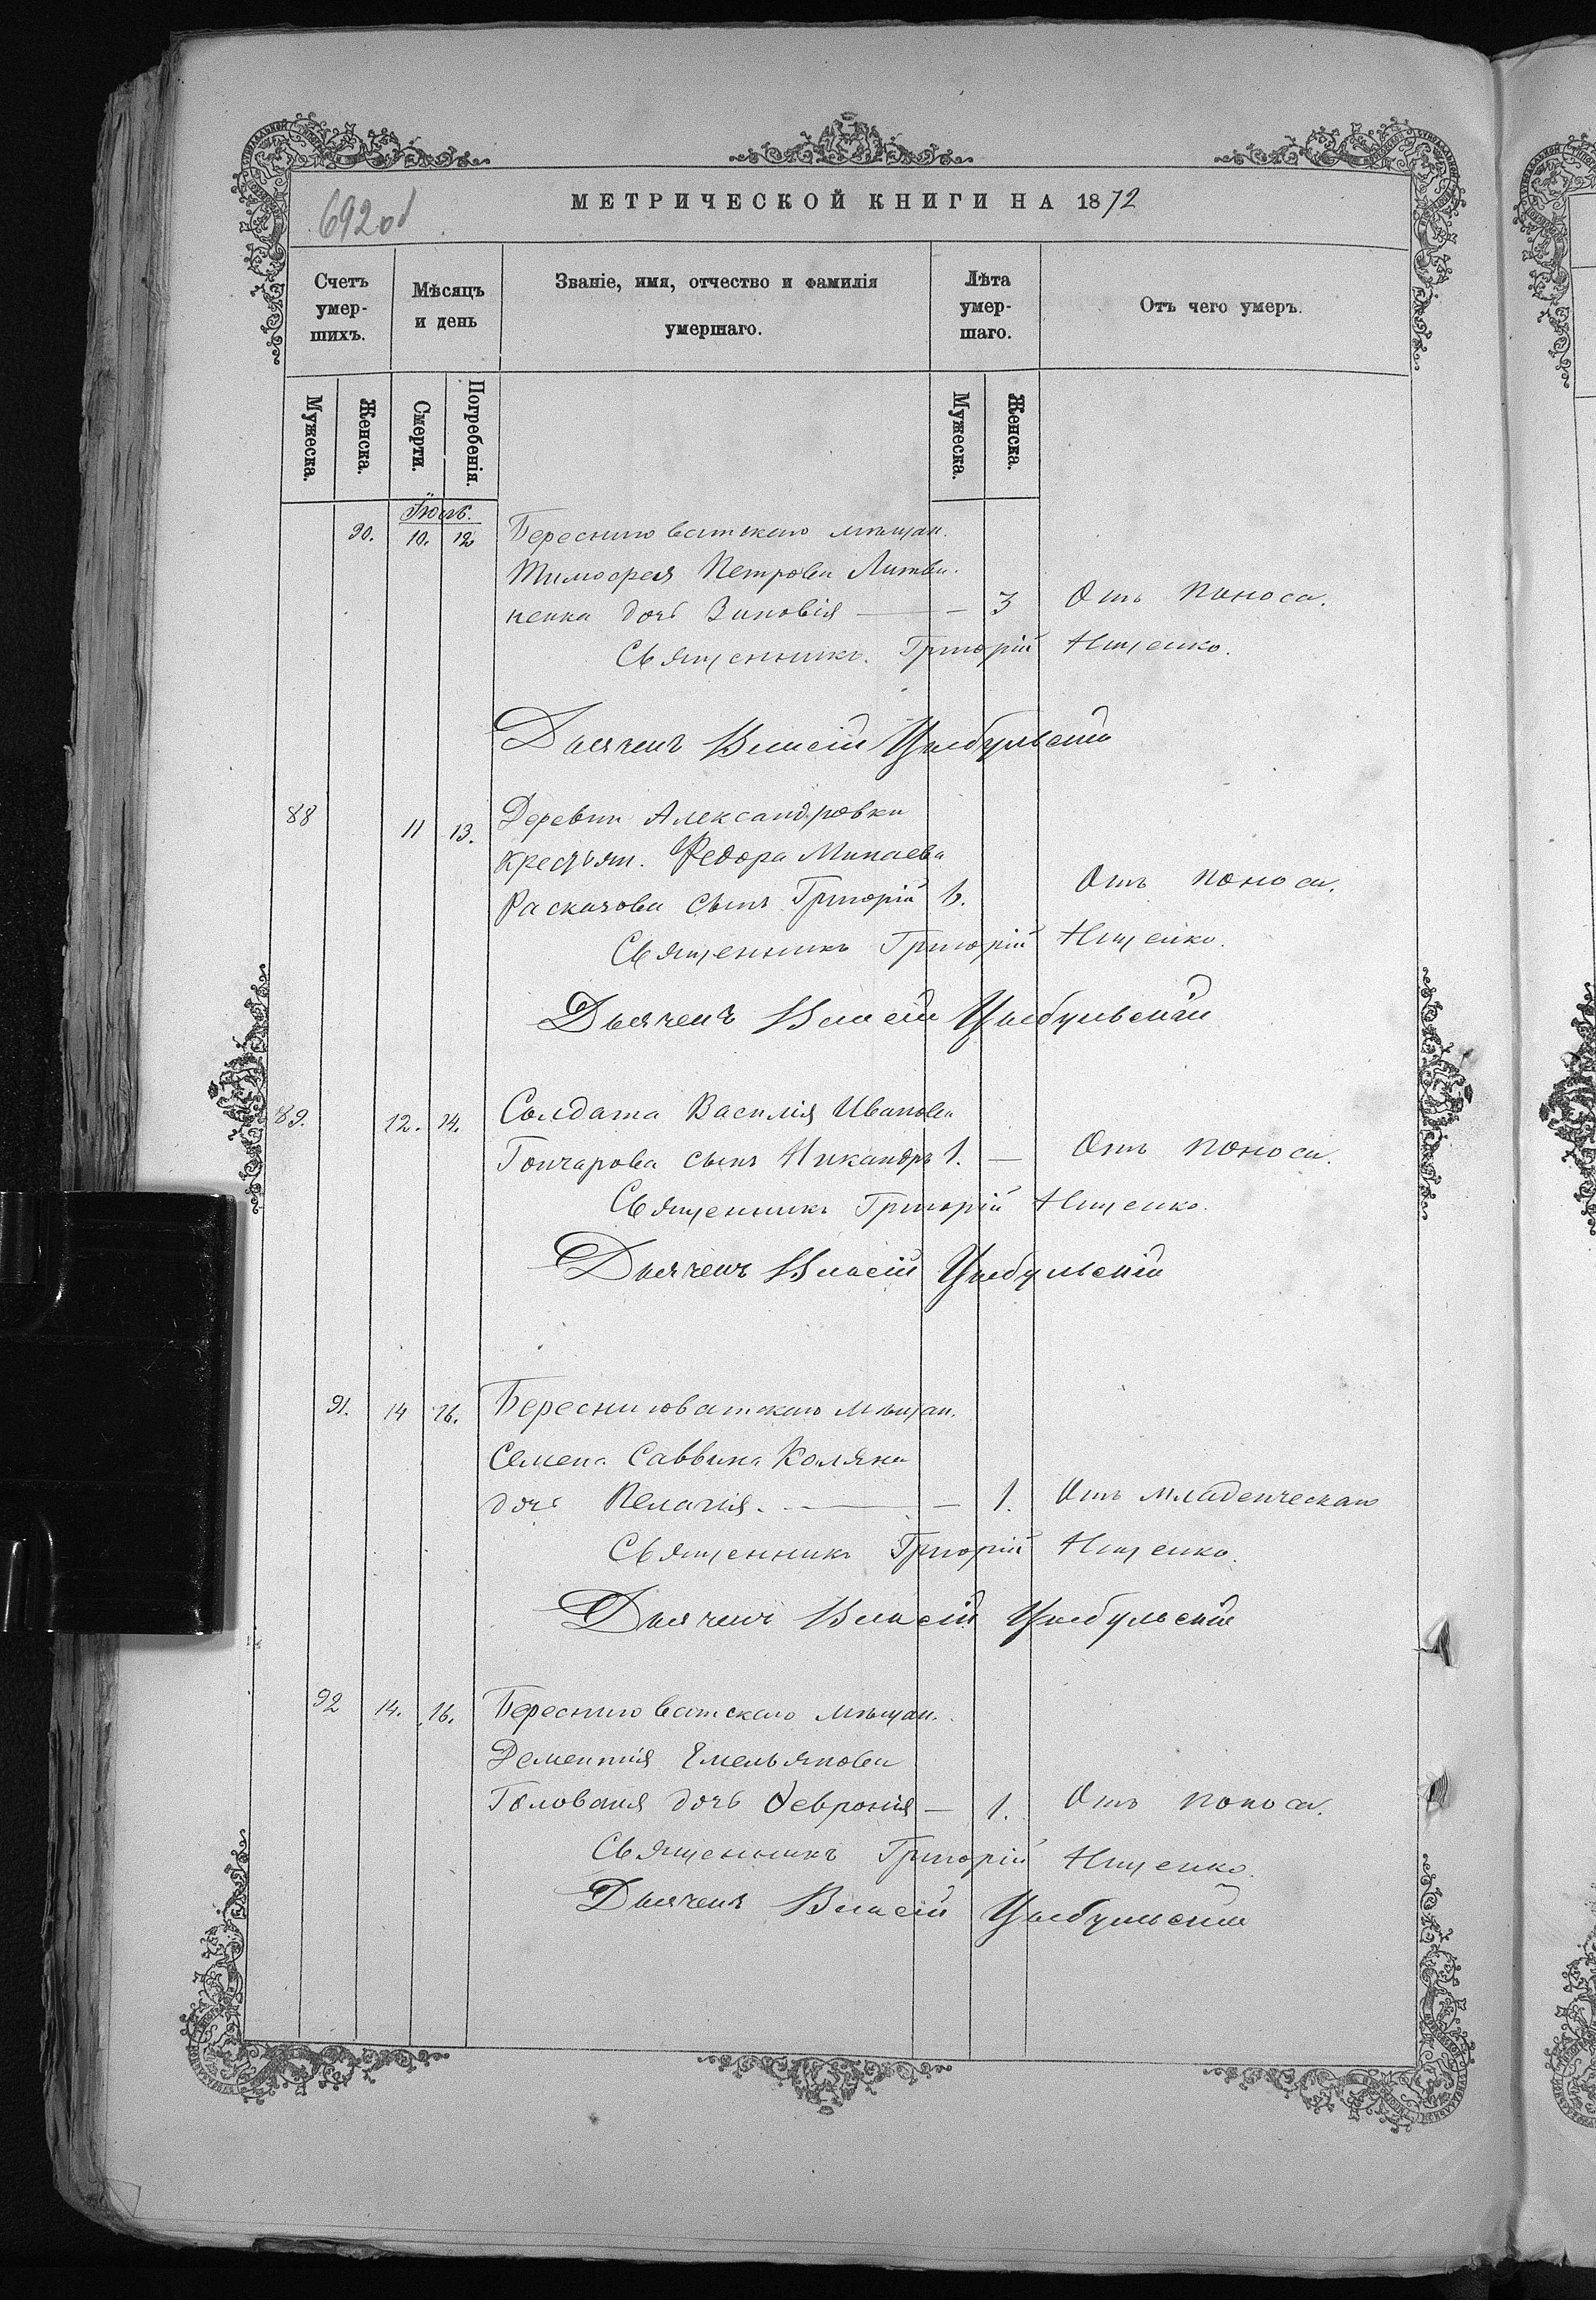 692 об
МЕТРИЧЕСКОЙ КНИГИ НА 1872
Счетъ умер-шихъ.
Мѣсяцъ и день
Званіе, имя, отчество и фамилія умершаго.
Лѣта умер-шаго.
Отъ чего умеръ.
Мужеска.
Женска.
Смерти.
Погребенія.
Мужеска.
Женска.
90. 10. 12 Бересниговатскаго мѣщан.
Тимофея Петрова Литви-
ненка дочь Зиновія — 3 Отъ поноса.
Священникъ Григорій Нищенко.
Дьячекъ Власій Цыбульскій
88 11 13. Деревни Александровки
крестьян. Федора Минаева
Сынъ Григорій 1. Отъ поноса.
Священникъ Григорій Нищенко.
Дьячекъ Власій Цыбульскій
89. 12. 14. Солдата Василія Иванова
Гончарова сынъ Никандръ 1. — Отъ поноса.
Священникъ Григорій Нищенко.
Дьячекъ Власій Цыбульскій
91. 14 16. Бересниговатскаго мѣщан.
Семена Саввина
дочь Пелагія. — 1. Отъ младенческаго
Священникъ Григорій Нищенко.
Дьячекъ Власій Цыбульскій
92 14. 16. Бересниговатскаго мѣщан.
Дементія Емельянова
Голованя дочь Ѳевронія — 1. Отъ поноса.
Священникъ Григорій Нищенко.
Дьячекъ Власій Цыбульскій